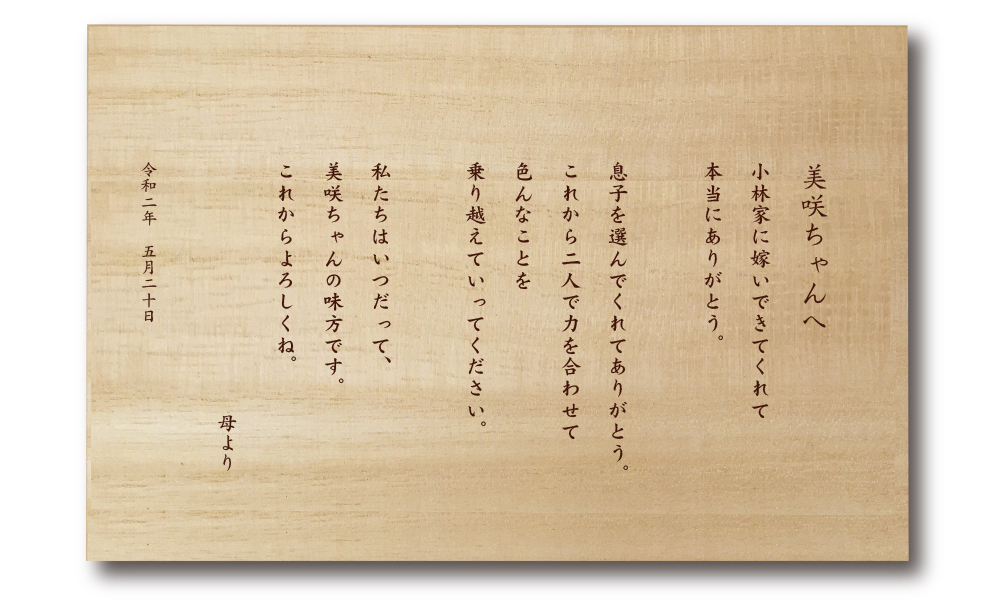 美咲ちゃんへ
小林家に嫁いできてくれて
本当にありがとう。
息子を選んでくれてありがとう。
これから二人で力を合わせて
色んなことを
乗り越えていってください。
私たちはいつだって、
美咲ちゃんの味方です。
これからよろしくね。
母より
令和二年　五月二十日